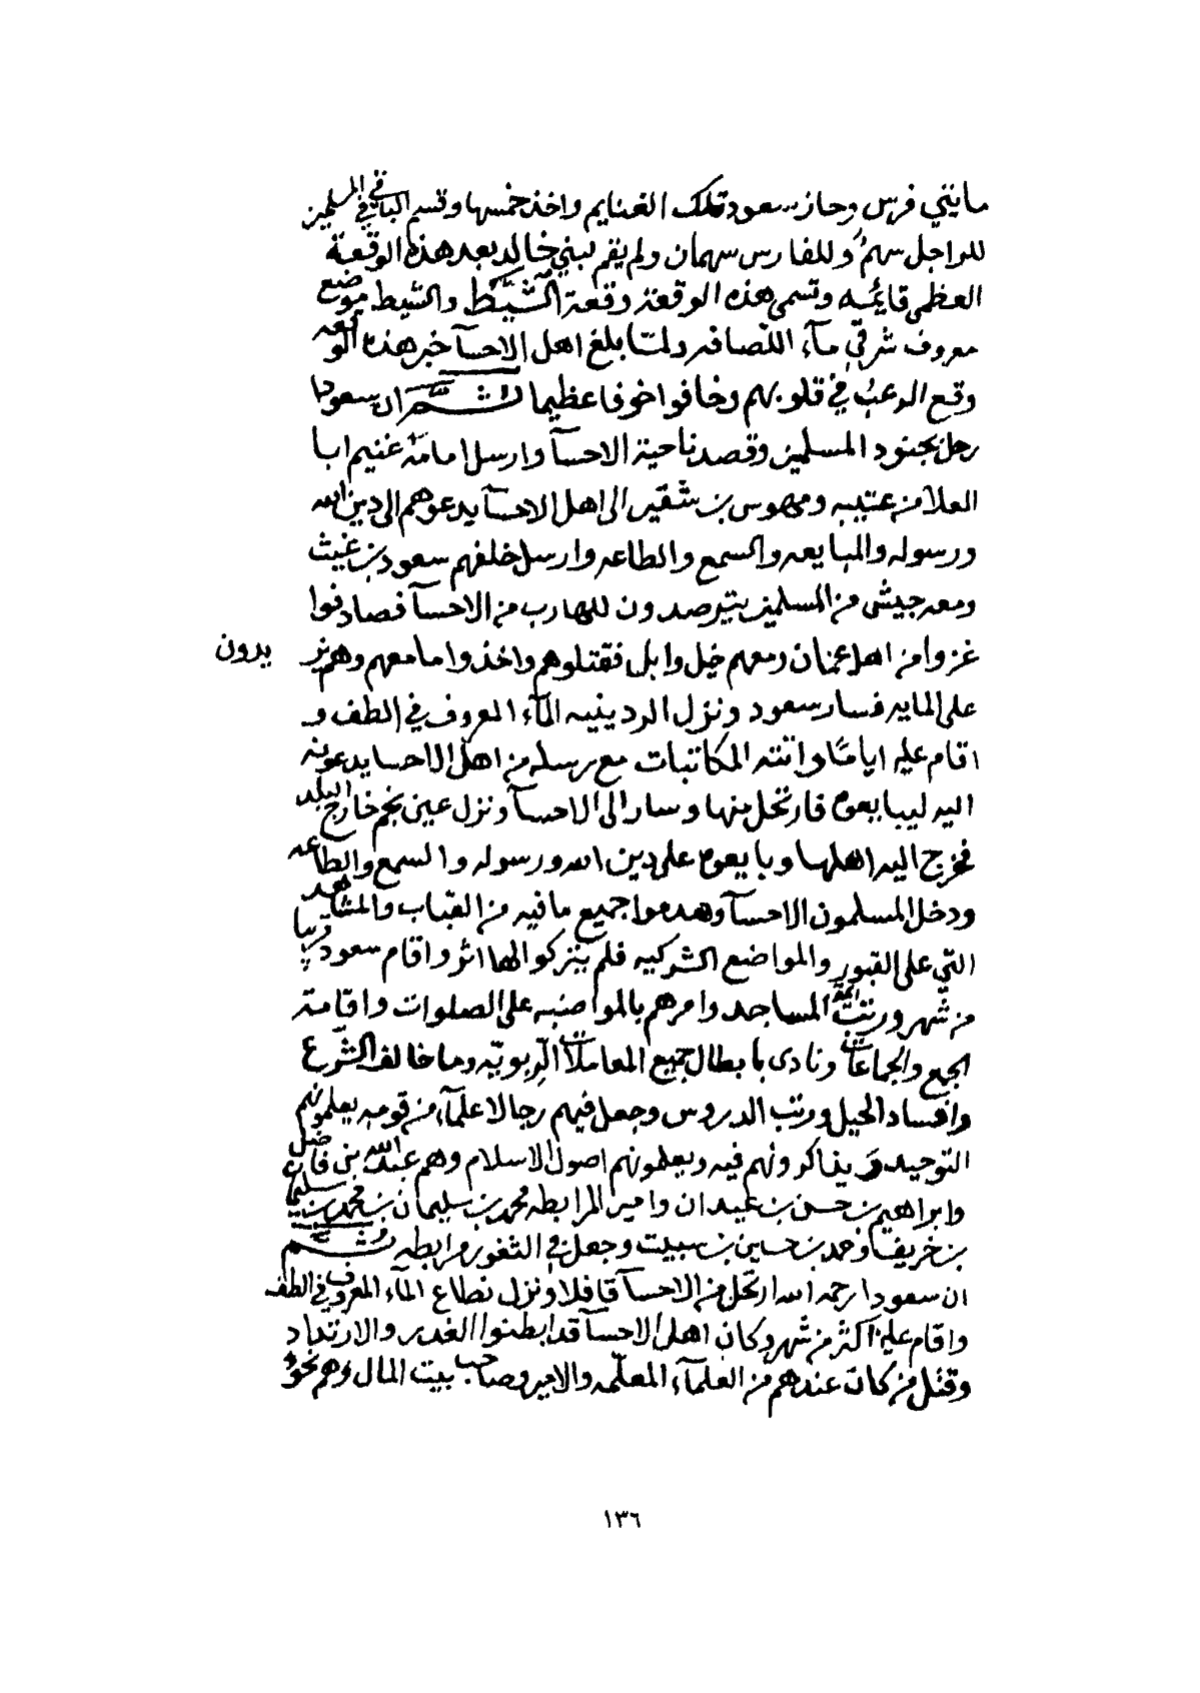 مايتي فرس وحاز سعود تلك الغنايم واخذ خمسها وقسم الباقي في المسلمين
للراجل سهم وللفارس سهمان ولم يقم لبني خالد بعد هذه الوقعة
العظمى قايمه وتسمى هذه الوقعة وقعة الشيط والشيط موضع
معروف شرقي مآء اللصافه ولما بلغ اهل الاحسآ خبر هذه الوقعه
وقع الرعب في قلوبهم وخافوا خوفا عظيما ثم ان سعودا
رحل بجنود المسلمين وقصد ناحية الاحسآ وارسل امامه غنيم ابا
العلا من عتيبه ومهوس بن شقير الى اهل الاحسآ يدعوهم الى دين الله
ورسوله والمبايعه والسمع والطاعه وارسل خلفهم سعود بن غيث
ومعه جيش من المسلمين يترصدون للهارب من الاحسآ فصادفوا
غزوا من اهل عمان ومعهم خيل وابل فقتلوهم واخذوا ما معهم وهم يريدون
على المايه فسار سعود ونزل الردينيه المآء المعروف في الطف و
اقام عليه اياما واتته المكاتبات مع رسله من اهل الاحسا يدعونه
اليه ليبايعوه فارتحل منها وسار الى الاحسآ ونزل عين نجم خارج البلد
فخرج اليه اهلها وبايعوه على دين الله ورسوله والسمع والطاعه
ودخل المسلمون الاحسآ وهدموا جميع ما فيه من القباب والمشاهد
التي على القبور والمواضع الشركيه فلم يتركوا لها اثر واقام سعود قريبا
من شهر ورتب ائمة المساجد وامرهم بالمواضبه على الصلوات واقامة
الجمع والجماعات ونادى بابطال جميع المعاملات الربويه وما خالف الشرع
وافساد الحيل ورتب الدروس وجعل فيهم رجالا علمآء من قومه يعلمونهم
التوحيد ويذاكرونهم فيه ويعلمونهم اصول الاسلام وهم عبدالله بن فاضل
وابراهيم بن حسن بن عيدان وامير المرابطه محمد بن سليمان بن محمد بن سليما
بن خريف وحمد بن حسين بن سبيت وجعل في الثغور مرابطه ثم
ان سعودا رحمه الله ارتحل من الاحسآ قافلا ونزل نطاع المآء المعروف في الطف
واقام عليه اكثر من شهر وكان اهل الاحسآ قد ابطنوا الغدر والارتداد
وقتل من كان عندهم من العلمآء المعلمه والامير وصاحب بيت المال وهم نحو
١٣٦